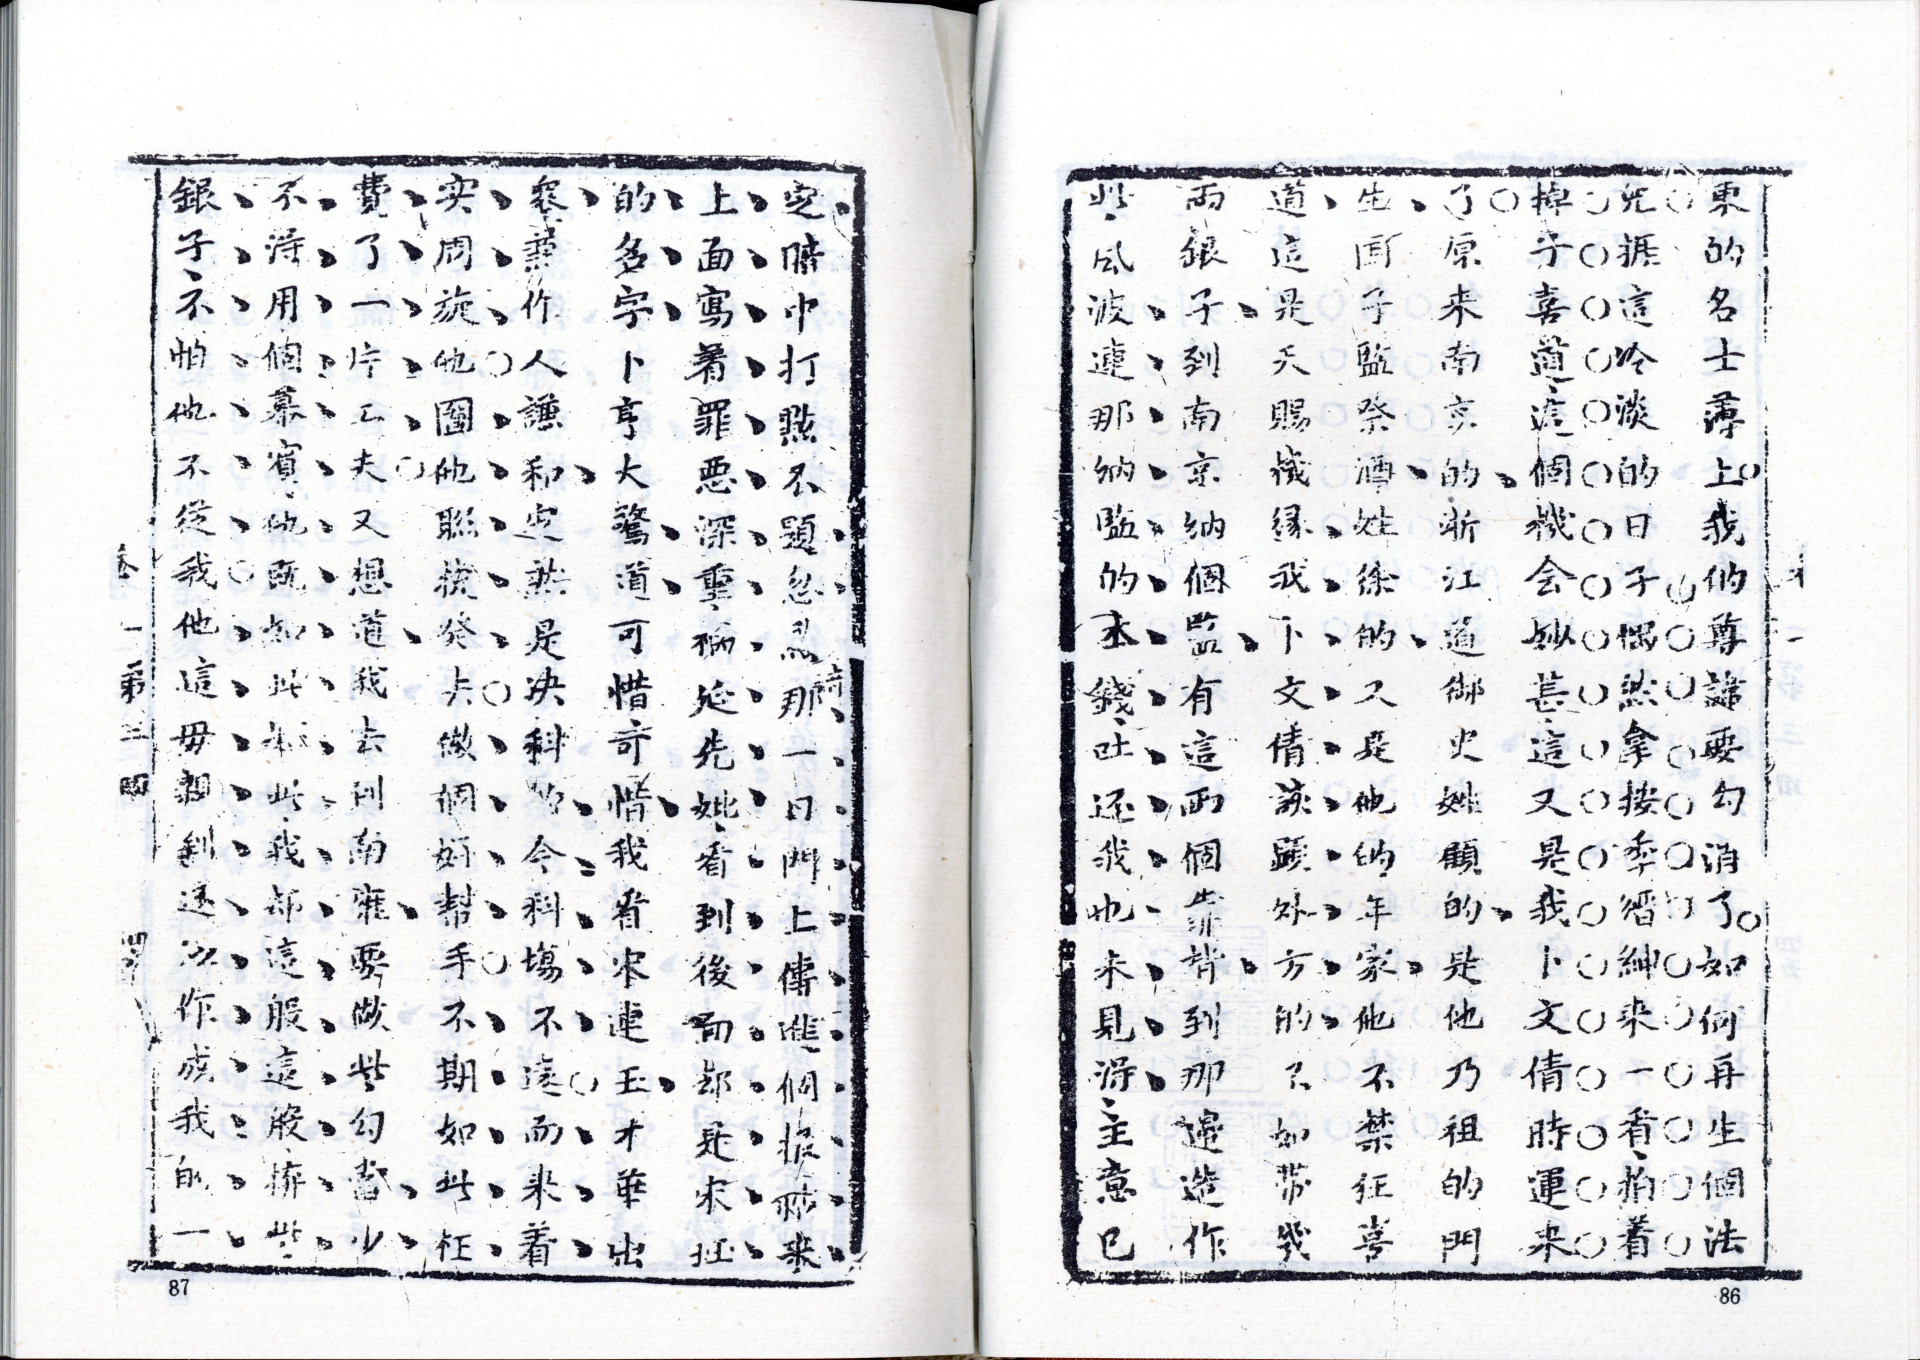 東的名士薄上我的尊諱要勾消了如何再生個法
兒振這冷淡的日子偶然拿搢紳来一看拍着
掉子喜道這個機会妙甚這又是我卜文倩時運来
了原来南京的浙江道御史姓顧的是他乃祖的門
生国子監祭酒姓徐的又是他的年家他不禁狂喜
道這是天賜機緣我卜文倩該顯外方的不如带幾
兩銀子到南京納個監有這兩個靠背到那邊造作
些風波連那納監的本錢吐还我也未見得主意已
定暗中打點不題忽然那一日門上傳進個報帖来
上面寫着罪惡深重禍延先妣看到後面却是宋玨
的名字卜亨大驚道可惜可惜我看宋連玉才華出
衆兼作人謙和定然是决科的今科塲不遠而来着
实周旋他圖他聯捷發去做個好幫手不期如此枉
費了一片工夫又想道我去到南雍要做些勾當少
不得用個幕賓他既如此如此我却這般這般擠些
銀子不怕他不從我他這毋親到送 作成我的一
卷一 第三囬
86
87